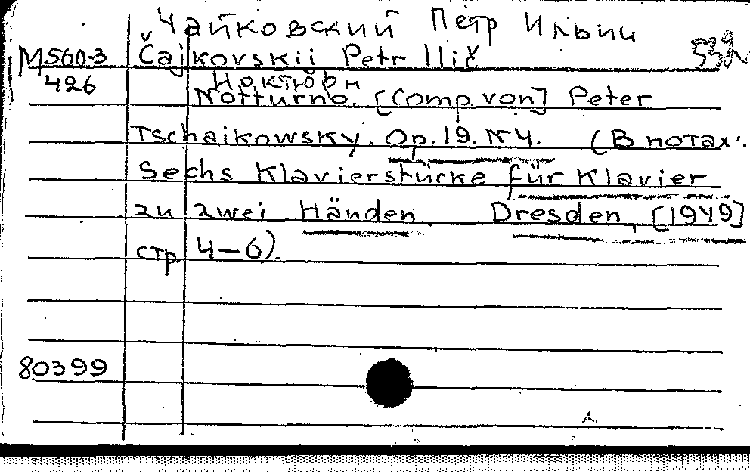 Чайковский Петр Ильич
M560-3 Čajkovskii Petr Ilič
426 Ноктюрн
Notturno. [Comp. von] Peter
Tschaikowsky. Op. 19. N4. (В нотах:
Sechs Klavierstücke für Klavier
zu zwei Händen. Dresden, [1949]
стр 4-6).
80399